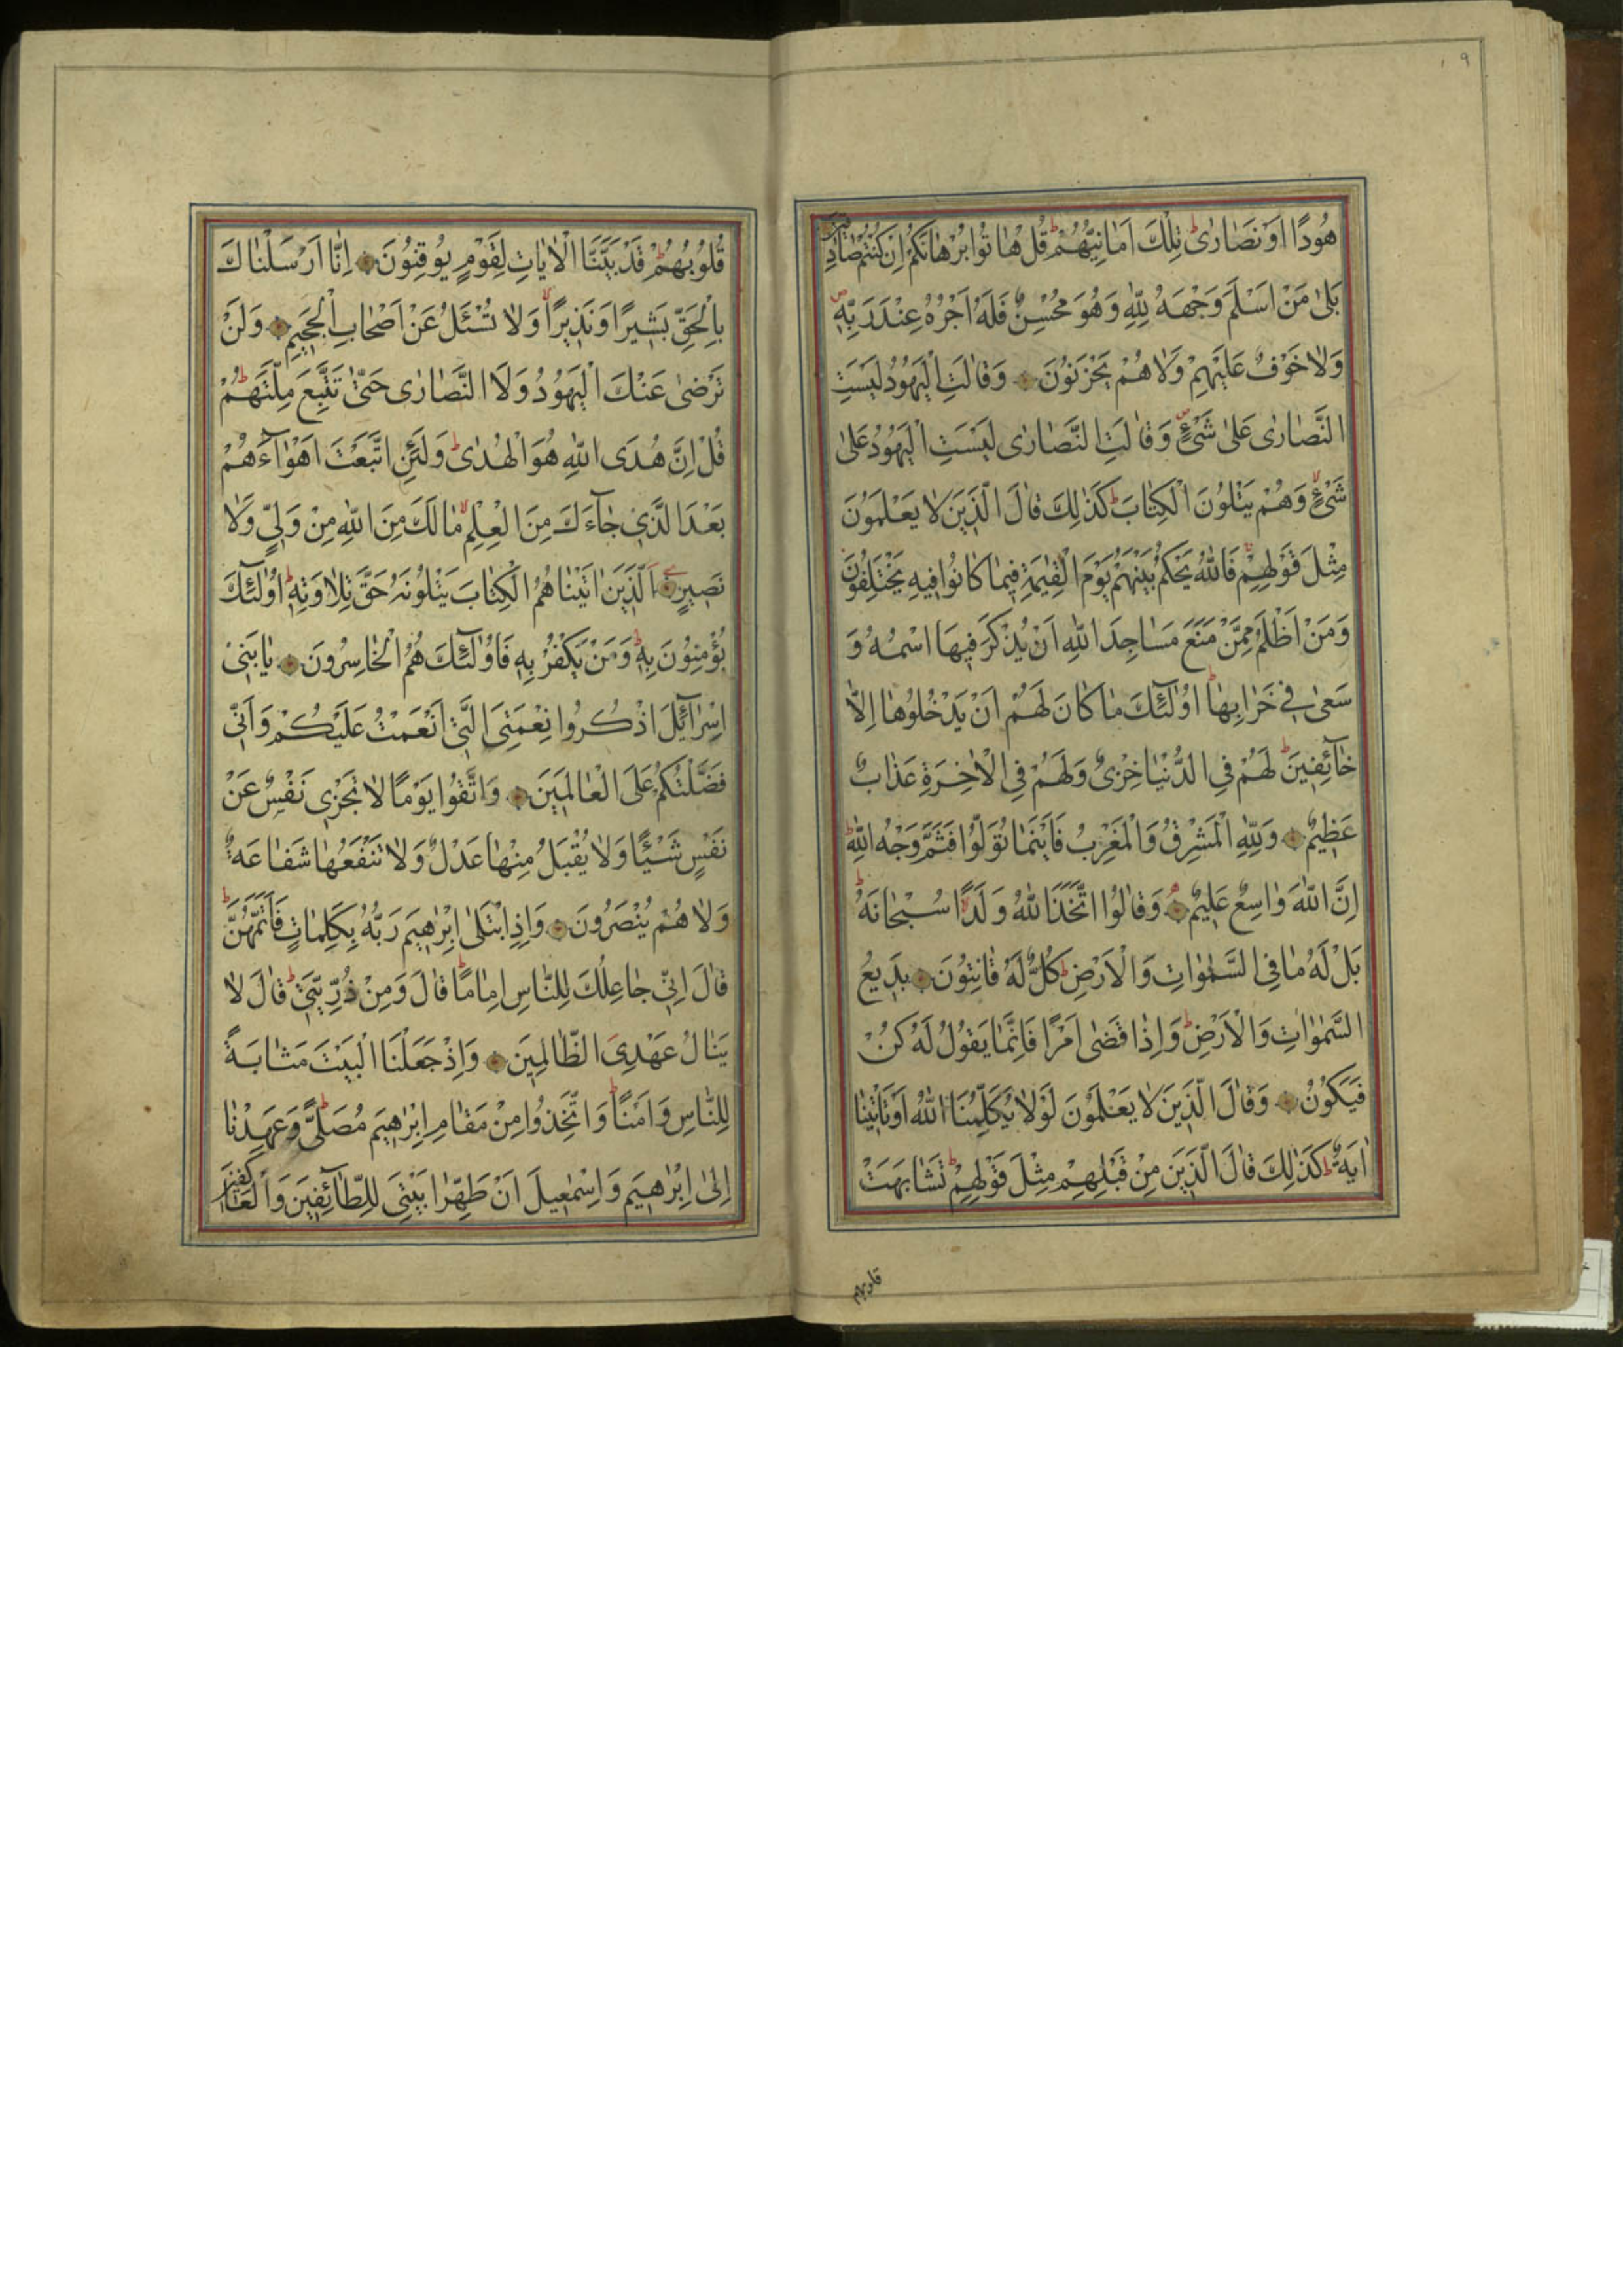 ١٩
هُودًا اَوْ نَصَارٰى تِلْكَ اَمَانِيُّهُمْ قُلْ هَاتُوا بُرْهَانَكُمْ اِنْ كُنْتُمْ صَادِقِينَ
بَلٰى مَنْ اَسْلَمَ وَجْهَهُ لِلّٰهِ وَهُوَ مُحْسِنٌ فَلَهُ اَجْرُهُ عِنْدَ رَبِّهِ
وَلَا خَوْفٌ عَلَيْهِمْ وَلَا هُمْ يَحْزَنُونَ وَقَالَتِ الْيَهُودُ لَيْسَتِ
النَّصَارٰى عَلٰى شَىْءٍ وَقَالَتِ النَّصَارٰى لَيْسَتِ الْيَهُودُ عَلٰى
شَىْءٍ وَهُمْ يَتْلُونَ الْكِتَابَ كَذٰلِكَ قَالَ الَّذِينَ لَا يَعْلَمُونَ
مِثْلَ قَوْلِهِمْ فَاللّٰهُ يَحْكُمُ بَيْنَهُمْ يَوْمَ الْقِيٰمَةِ فِيمَا كَانُوا فِيهِ يَخْتَلِفُونَ
وَمَنْ اَظْلَمُ مِمَّنْ مَنَعَ مَسَاجِدَ اللّٰهِ اَنْ يُذْكَرَ فِيهَا اسْمُهُ وَ
سَعٰى فِى خَرَابِهَا اُولٰئِكَ مَا كَانَ لَهُمْ اَنْ يَدْخُلُوهَا اِلَّا
خَآئِفِينَ لَهُمْ فِى الدُّنْيَا خِزْىٌ وَلَهُمْ فِى الْاٰخِرَةِ عَذَابٌ
عَظِيمٌ وَلِلّٰهِ الْمَشْرِقُ وَالْمَغْرِبُ فَاَيْنَمَا تُوَلُّوا فَثَمَّ وَجْهُ اللّٰهِ
اِنَّ اللّٰهَ وَاسِعٌ عَلِيمٌ وَقَالُوا اتَّخَذَ اللّٰهُ وَلَدًا سُبْحَانَهُ
بَلْ لَهُ مَا فِى السَّمٰوَاتِ وَالْاَرْضِ كُلٌّ لَهُ قَانِتُونَ بَدِيعُ
السَّمٰوَاتِ وَالْاَرْضِ وَاِذَا قَضٰى اَمْرًا فَاِنَّمَا يَقُولُ لَهُ كُنْ
فَيَكُونُ وَقَالَ الَّذِينَ لَا يَعْلَمُونَ لَوْلَا يُكَلِّمُنَا اللّٰهُ اَوْ تَاْتِينَا
اٰيَةٌ كَذٰلِكَ قَالَ الَّذِينَ مِنْ قَبْلِهِمْ مِثْلَ قَوْلِهِمْ تَشَابَهَتْ
قلوبهم
قُلُوبُهُمْ قَدْ بَيَّنَّا الْاٰيَاتِ لِقَوْمٍ يُوقِنُونَ اِنَّا اَرْسَلْنَاكَ
بِالْحَقِّ بَشِيرًا وَنَذِيرًا وَلَا تُسْئَلُ عَنْ اَصْحَابِ الْجَحِيمِ وَلَنْ
تَرْضٰى عَنْكَ الْيَهُودُ وَلَا النَّصَارٰى حَتّٰى تَتَّبِعَ مِلَّتَهُمْ
قُلْ اِنَّ هُدَى اللّٰهِ هُوَ الْهُدٰى وَلَئِنِ اتَّبَعْتَ اَهْوَآءَهُمْ
بَعْدَ الَّذِى جَآءَكَ مِنَ الْعِلْمِ مَا لَكَ مِنَ اللّٰهِ مِنْ وَلِىٍّ وَلَا
نَصِيرٍ اَلَّذِينَ اٰتَيْنَاهُمُ الْكِتَابَ يَتْلُونَهُ حَقَّ تِلَاوَتِهِ اُولٰئِكَ
يُؤْمِنُونَ بِهِ وَمَنْ يَكْفُرْ بِهِ فَاُولٰئِكَ هُمُ الْخَاسِرُونَ يَا بَنِى
اِسْرَآئِلَ اذْكُرُوا نِعْمَتِىَ الَّتِى اَنْعَمْتُ عَلَيْكُمْ وَاَنِّى
فَضَّلْتُكُمْ عَلَى الْعَالَمِينَ وَاتَّقُوا يَوْمًا لَا تَجْزِى نَفْسٌ عَنْ
نَفْسٍ شَيْئًا وَلَا يُقْبَلُ مِنْهَا عَدْلٌ وَلَا تَنْفَعُهَا شَفَاعَةٌ
وَلَا هُمْ يُنْصَرُونَ وَاِذِ ابْتَلٰى اِبْرٰهِيمَ رَبُّهُ بِكَلِمَاتٍ فَاَتَمَّهُنَّ
قَالَ اِنِّى جَاعِلُكَ لِلنَّاسِ اِمَامًا قَالَ وَمِنْ ذُرِّيَّتِى قَالَ لَا
يَنَالُ عَهْدِىَ الظَّالِمِينَ وَاِذْ جَعَلْنَا الْبَيْتَ مَثَابَةً
لِلنَّاسِ وَاَمْنًا وَاتَّخِذُوا مِنْ مَقَامِ اِبْرٰهِيمَ مُصَلًّى وَعَهِدْنَا
اِلٰى اِبْرٰهِيمَ وَاِسْمٰعِيلَ اَنْ طَهِّرَا بَيْتِىَ لِلطَّآئِفِينَ وَالْعَاكِفِينَ